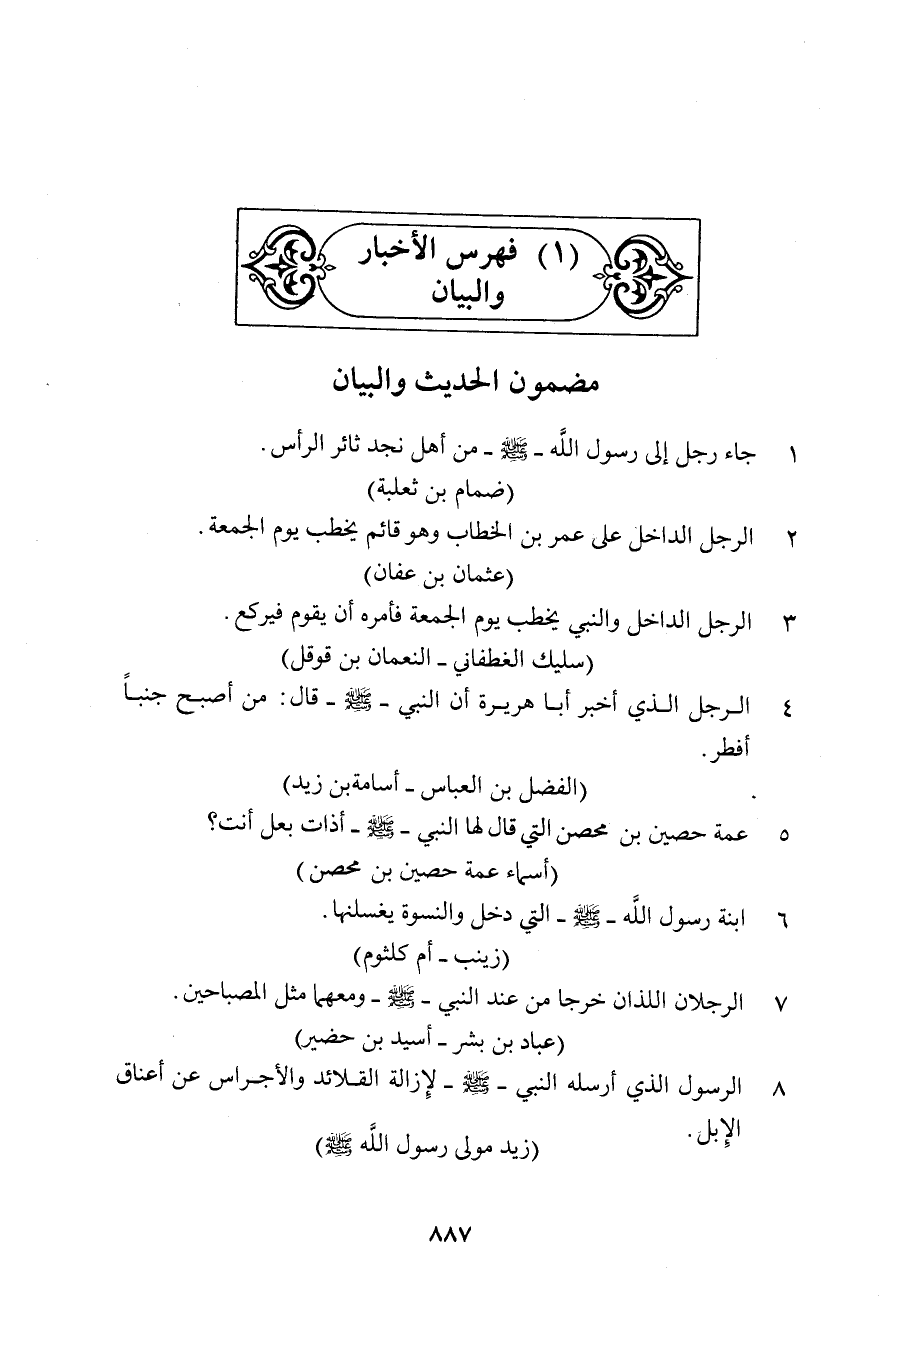 (١) فهرس الأخبار
والبيان
مضمون الحديث والبيان
١ جاء رجل إلى رسول اللَّه ـ ﷺ ـ من أهل نجد ثائر الرأس.
(ضمام بن ثعلبة)
٢ الرجل الداخل على عمر بن الخطاب وهو قائم يخطب يوم الجمعة.
(عثمان بن عفان)
٣ الرجل الداخل والنبي يخطب يوم الجمعة فأمره أن يقوم فيركع.
(سليك الغطفاني ـ النعمان بن قوقل)
٤ الـرجل الـذي أخبر أبـا هريـرة أن النبي ـ ﷺ ـ قال: من أصبـح جنبـاً
أفطر.
(الفضل بن العباس ـ أسامةبن زيد)
٥ عمة حصين بن محصن التي قال لها النبي ـ ﷺ ـ أذات بعل أنت؟
(أسماء عمة حصين بن محصن)
٦ ابنة رسول اللَّه ـ ﷺ ـ التي دخل والنسوة يغسلنها.
(زينب ـ أم كلثوم)
٧ الرجلان اللذان خرجا من عند النبي ـ ﷺ ـ ومعهما مثل المصباحين.
(عباد بن بشر ـ أسيد بن حضير)
٨ الرسول الذي أرسله النبي ـ ﷺ ـ لإزالة القـلائد والأجـراس عن أعناق
الإبل.
(زيد مولى رسول اللَّه ﷺ)
٨٨٧